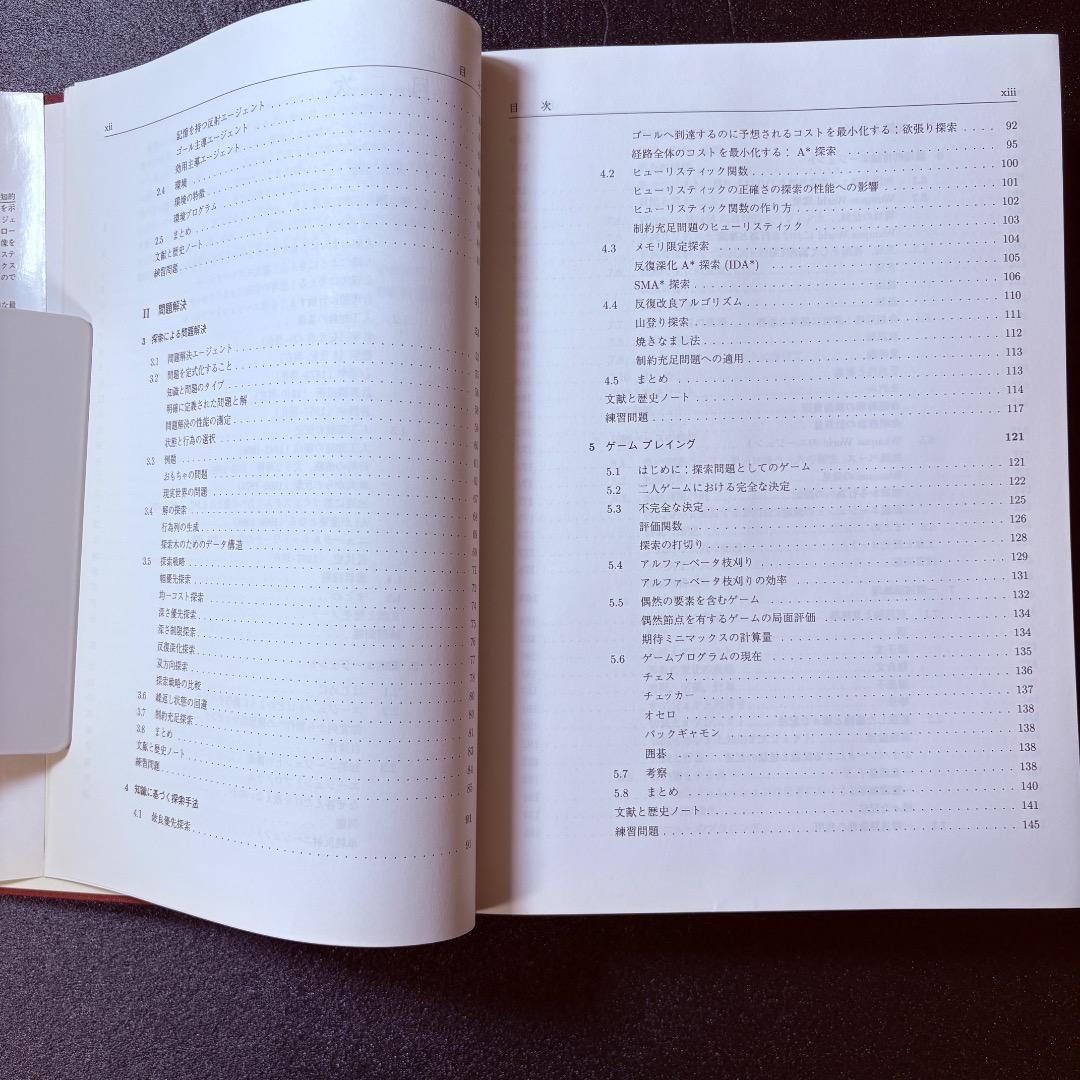 xii
目
記憶を持つ反射エージェント
ゴール主導エージェント
効用主導エージェント
2.4 環境
環境の特徴
環境プログラム
2.5 まとめ
文献と歴史ノート
練習問題
II 問題解決
3 探索による問題解決
3.1 問題解決エージェント
3.2 問題を定式化すること
知識と問題のタイプ
明確に定義された問題と解
問題解決の性能の測定
状態と行為の選択
3.3 例題
おもちゃの問題
現実世界の問題
3.4 解の探索
行為列の生成
探索木のためのデータ構造
3.5 探索戦略 71
幅優先探索
均一コスト探索 74
深さ優先探索 75
深さ制限探索 76
反復深化探索 77
双方向探索 78
探索戦略の比較 80
3.6 繰返し状態の回避 80
3.7 制約充足探索 81
3.8 まとめ 83
文献と歴史ノート 84
練習問題 85
4 知識に基づく探索手法 91
4.1 最良優先探索 91
目 次 xiii
ゴールへ到達するのに予想されるコストを最小化する：欲張り探索 92
経路全体のコストを最小化する： A* 探索 95
4.2 ヒューリスティック関数 100
ヒューリスティックの正確さの探索の性能への影響 101
ヒューリスティック関数の作り方 102
制約充足問題のヒューリスティック 103
4.3 メモリ限定探索 104
反復深化 A* 探索 (IDA*) 105
SMA* 探索 106
4.4 反復改良アルゴリズム 110
山登り探索 111
焼きなまし法 112
制約充足問題への適用 113
4.5 まとめ 113
文献と歴史ノート 114
練習問題 117
5 ゲーム プレイング 121
5.1 はじめに：探索問題としてのゲーム 121
5.2 二人ゲームにおける完全な決定 122
5.3 不完全な決定 125
評価関数 126
探索の打切り 128
5.4 アルファ−ベータ枝刈り 129
アルファ−ベータ枝刈りの効率 131
5.5 偶然の要素を含むゲーム 132
偶然節点を有するゲームの局面評価 134
期待ミニマックスの計算量 134
5.6 ゲームプログラムの現在 135
チェス 136
チェッカー 137
オセロ 138
バックギャモン 138
囲碁 138
5.7 考察 138
5.8 まとめ 140
文献と歴史ノート 141
練習問題 145